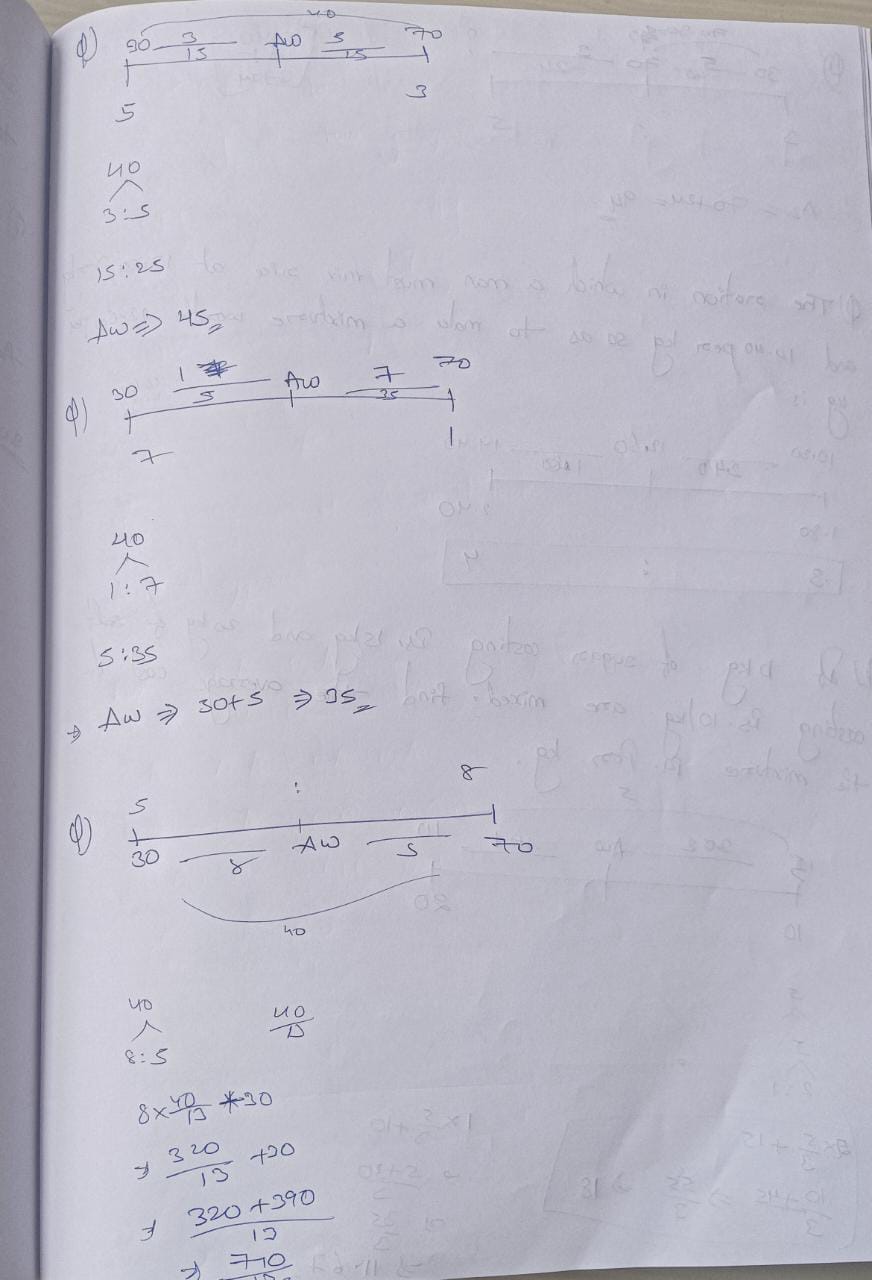 40
Q) 30 3 Aw 5 70
15 25
5 3
40
3:5
15:25
Aw => 45
Q) 30 1 Aw 7 70
5 35
7 1
40
1:7
5:35
→ Aw => 30+5 => 35
5 : 8
Q) 30 8 Aw 5 70
40
40 40/13
8:5
8×40/13 +30
=> 320/13 +30
=> 320+390/13
=> 710/13